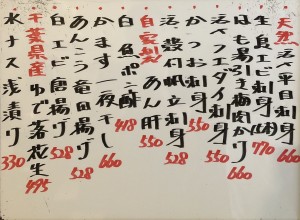 天然 活平目刺身 660
生 島エビ刺身(1本) 770
はも湯引き梅肉かけ 660
フエダイ刺身 550
かつお刺身 550
活 帆立刺身 528
自家製 あん肝 550
白魚ポン酢 418
かます一夜干し 660
あんこう竜田揚げ 528
白エビ唐揚げ 528
千葉県産ゆで落花生 495
水ナス浅漬り 330